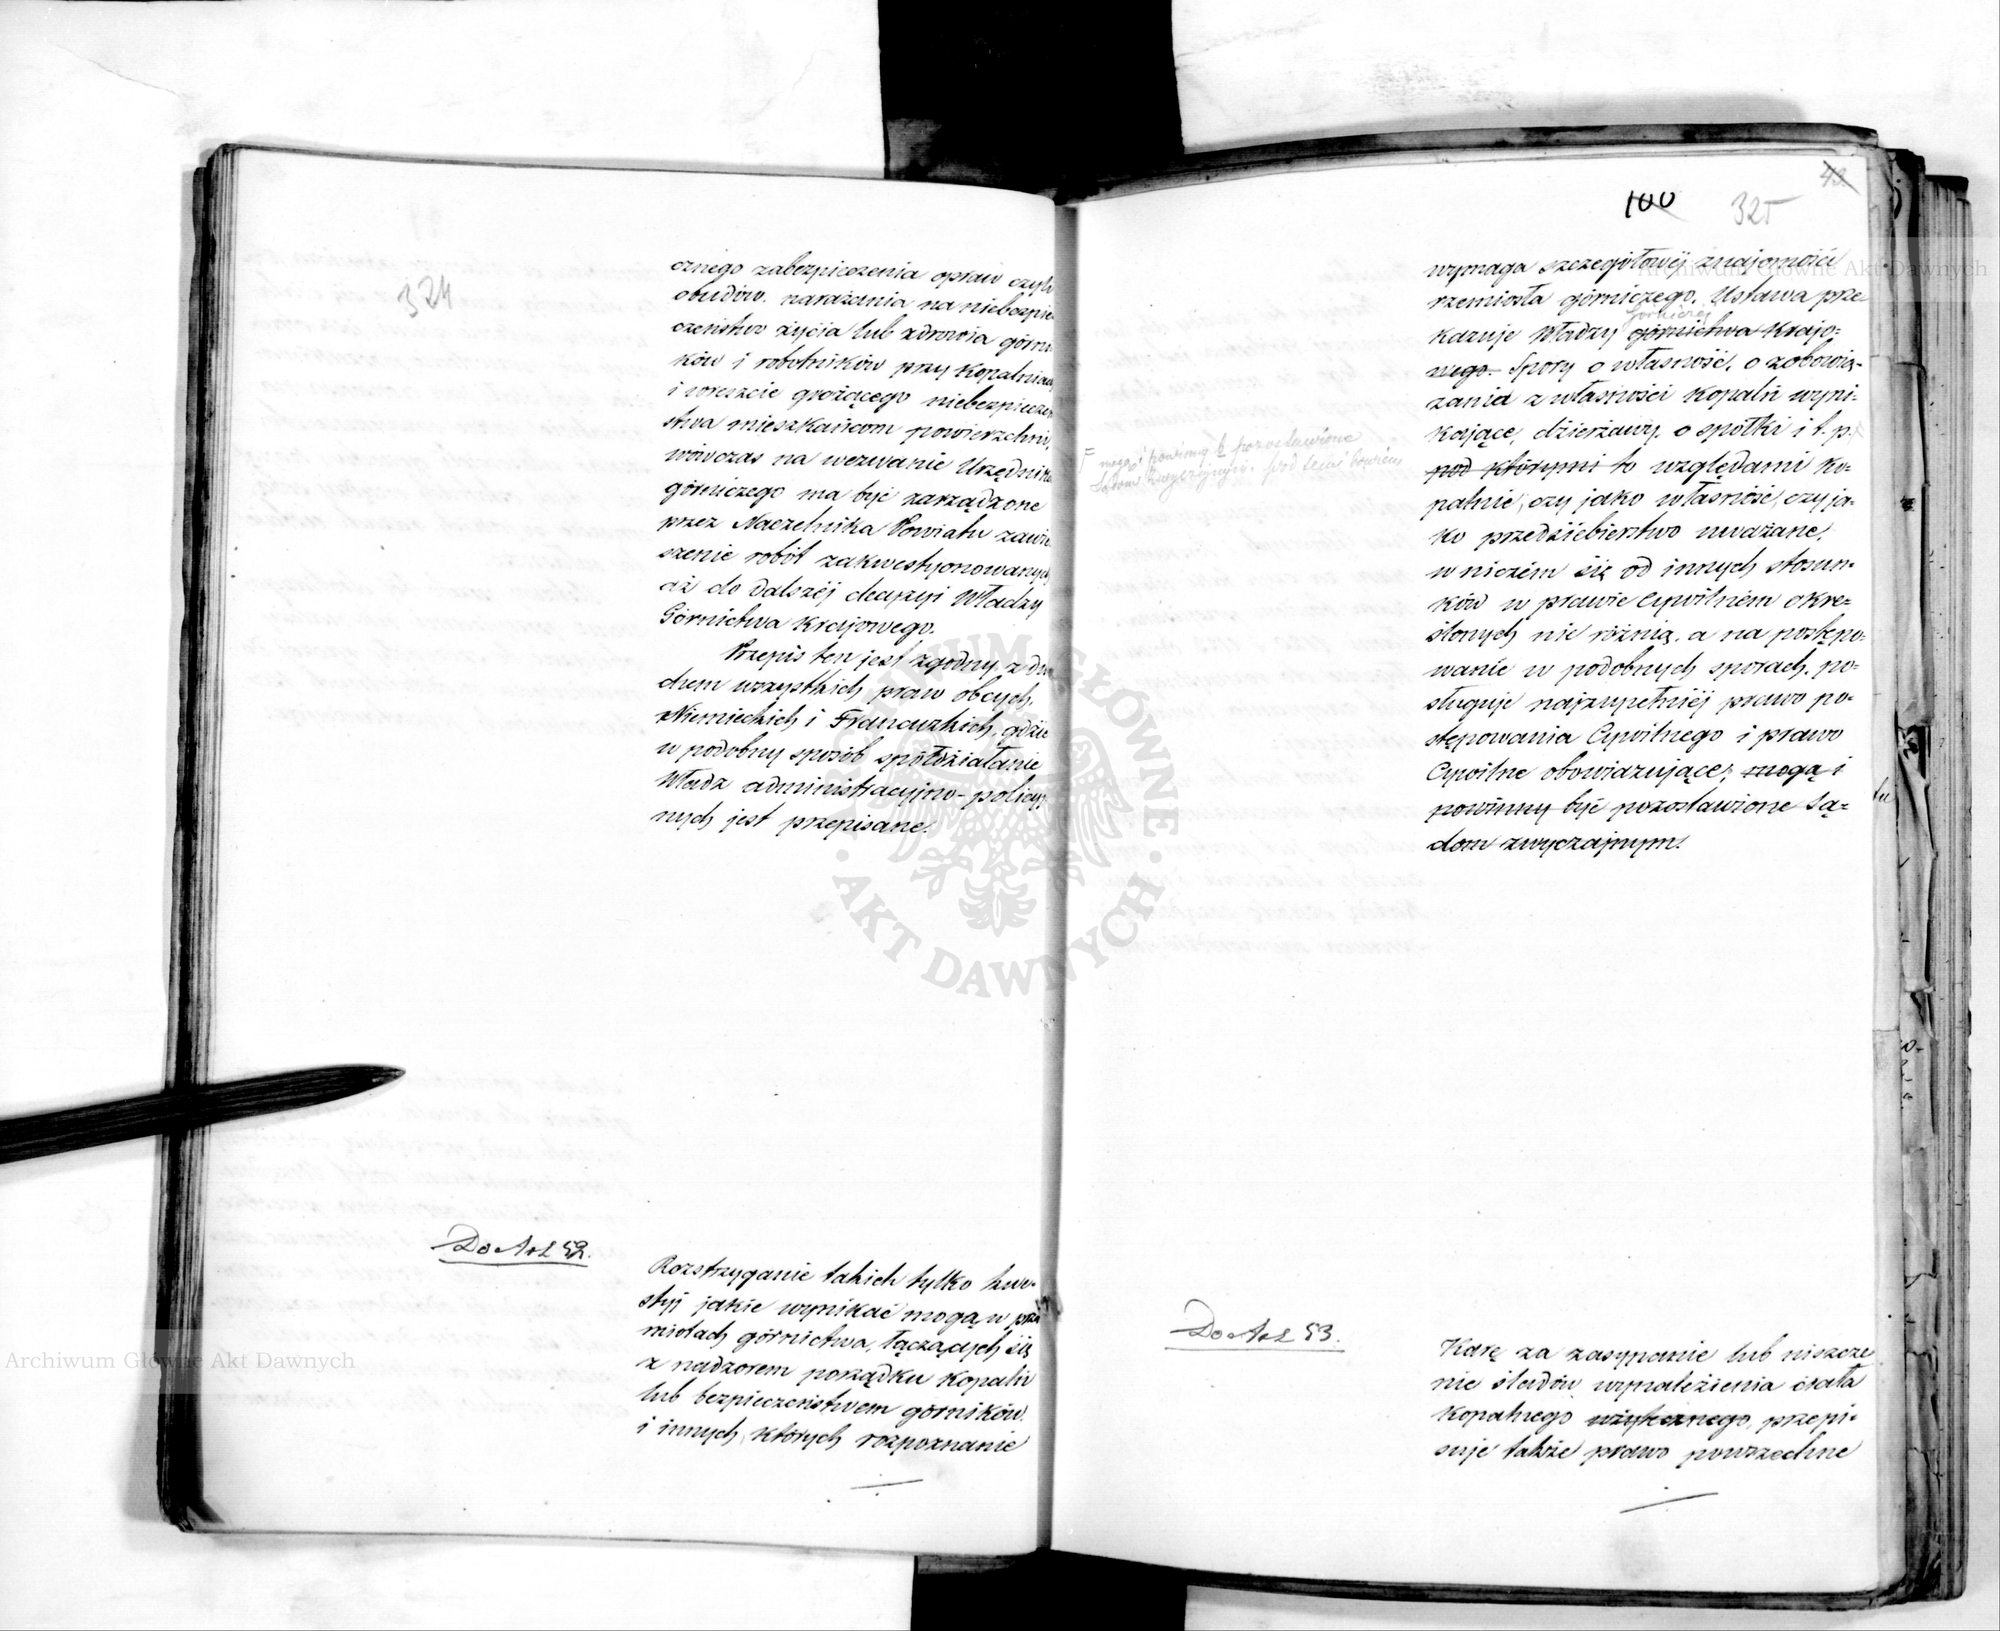 324
cznego zabezpieczenia opraw czyli
obudów, narażenia na niebezpie
czeństwo życia lub zdrowia górni
ków i robotników przy kopalniach
i wreszcie grożącego niebezpieczeń
stwa mieszkańcom powierzchni,
wówczas na wezwanie Urzędnika
górniczego ma być zarządzone
przez Naczelnika Powiatu zawie
szenie robót zakwestyonowanych
aż do dalszéj decyzyi Władzy
Górnictwa Krajowego.
Przepis ten jest zgodny z du
chem wszystkich praw obcych,
Niemieckich i Francuzkich, gdzie
w podobny sposób spółdziałanie
Władz administracyjno-policyj
nych jest przepisane.
Do Art 52.
Rozstrzyganie takich tylko kwe-
styj jakie wynikać mogą w przed
miotach górnictwa, łączących się
z nadzorem porządku kopalń
lub bezpieczeństwem górników
i innych, których rozpoznanie
43.
100 325
wymaga szczegółowéj znajomości
rzemiosła górniczego, Ustawa prze
Górniczej
kazuje Władzy górnictwa Krajo-
wego. Spory o własność, o zobowią-
zania z własności kopalń wyni-
kające, dzierżawy, o spółki i t. p.
F mogą i powinny być pozostawione
Sądom zwyczajnym. Pod temi bowiem
pod którymi to względami ko-
palnie, czy jako własność, czy ja-
ko przedsiebierstwo uważane,
w niczém się od innych stosun-
ków w prawie Cywilném okre-
ślonych nie różnią, a na postępo-
wanie w podobnych sporach, po-
sługuje najzupełniéj prawo po-
stępowania Cywilnego i prawo
Cywilne obowiązujące; mogą i
powinny być pozostawione Są-
dom zwyczajnym.
Do Art 53.
Karę za zasypanie lub niszcze
nie śladów wynalezienia ciała
kopalnego użytecznego, przepi-
suje także prawo powszechne
Archiwum Główne Akt Dawnych
Archiwum Główne Akt Dawnych
ARCHIWUM GŁÓWNE · AKT DAWNYCH ·